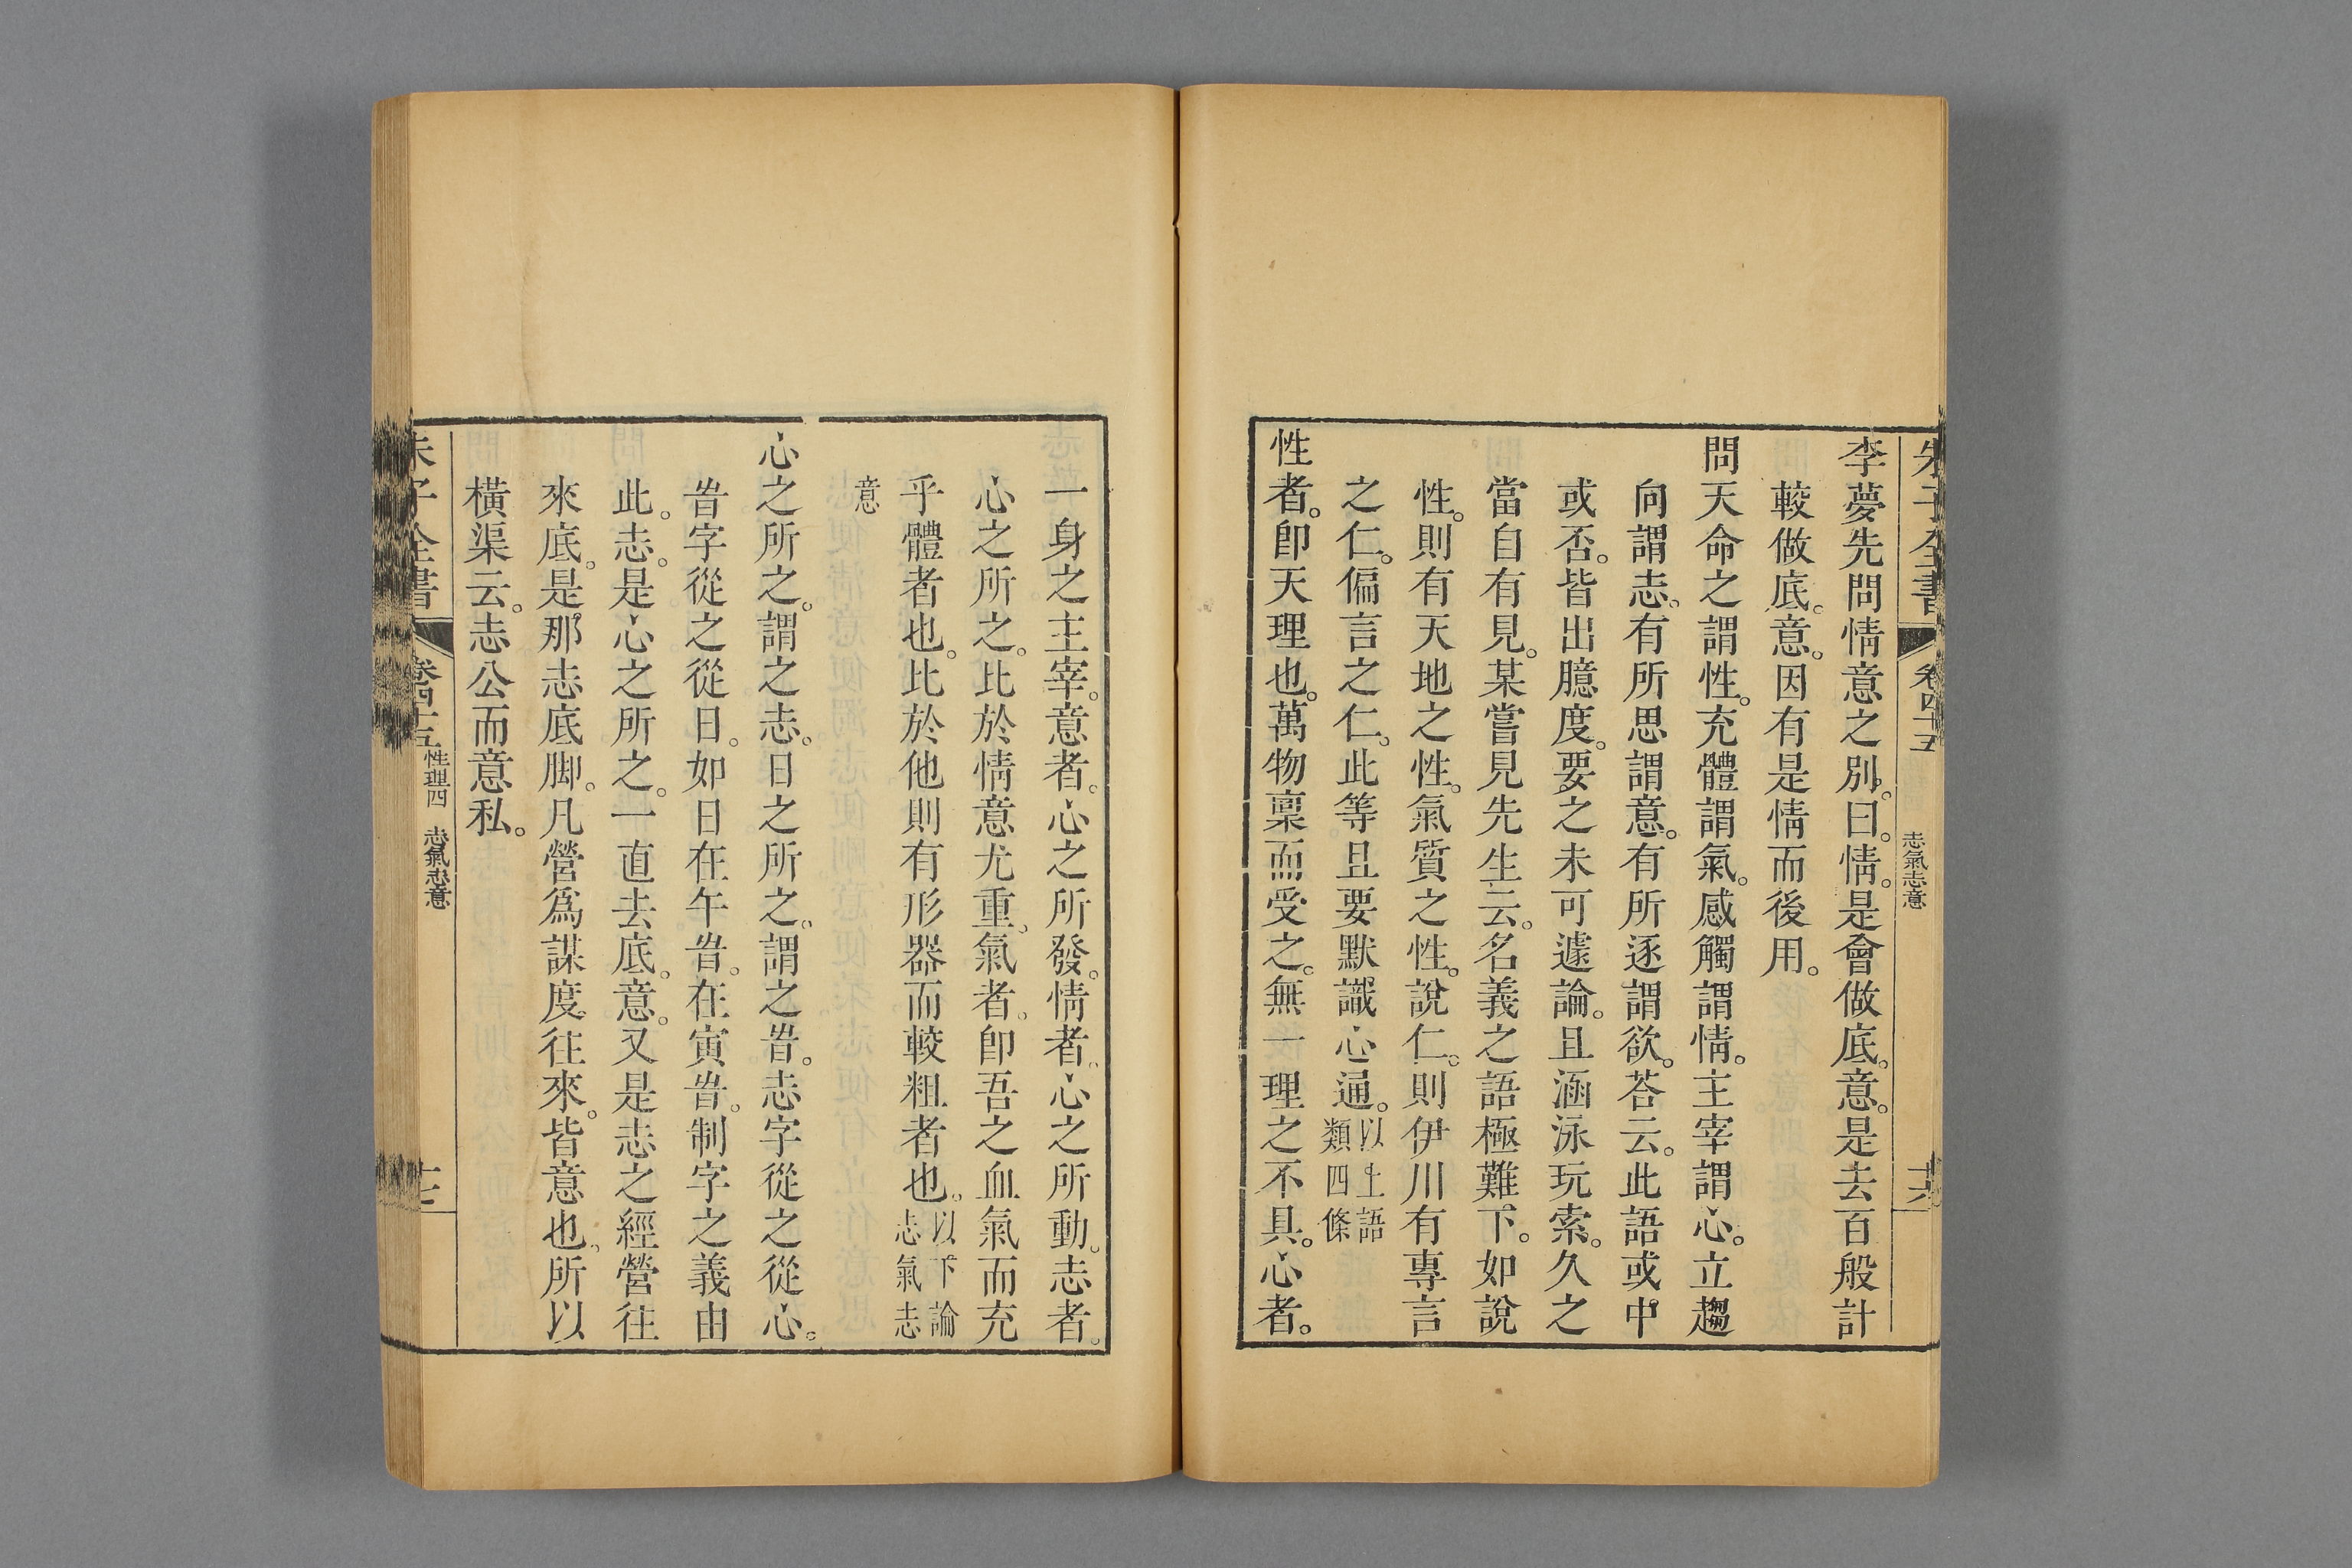 朱子全書 卷四十五 志氣志意 十六
李夢先問情意之別。曰。情。是會做底。意。是去百般計
較做底。意。因有是情而後用。
問天命之謂性。充體謂氣。感觸謂情。主宰謂心。立趨
向謂志。有所思謂意。有所逐謂欲。荅云。此語或中
或否。皆出臆度。要之未可遽論。且涵泳玩索。久之
當自有見。某嘗見先生云。名義之語極難下。如說
性。則有天地之性。氣質之性。說仁。則伊川有專言
之仁。偏言之仁。此等且要默識心通。以上語類四條
性者。卽天理也。萬物稟而受之。無一理之不具。心者。
一身之主宰。意者。心之所發。情者。心之所動。志者。
心之所之。比於情意尤重。氣者。卽吾之血氣而充
乎體者也。比於他則有形器而較粗者也。以下論志氣志
意
心之所之。謂之志。日之所之。謂之旹。志字從之從心。
旹字從之從日。如日在午旹。在寅旹。制字之義由
此。志。是心之所之。一直去底。意。又是志之經營往
來底。是那志底脚。凡營爲謀度往來。皆意也。所以
橫渠云。志公而意私。
朱子全書 卷四十五 性理四 志氣志意 十七